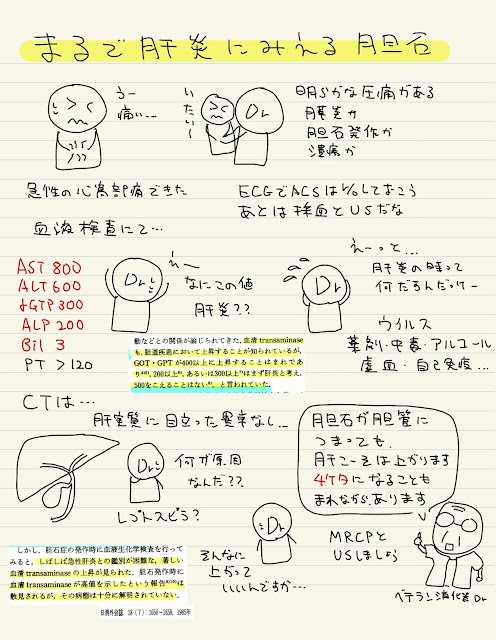 まるで肝炎にみえる胆石
うー
痛い…
いたいー
Dr
明らかな圧痛がある
膵炎か
胆石発作か
潰瘍か
急性の心窩部痛できた
ECGでACSはr/oしておこう
あとは採血とUSだな
血液検査にて…
AST 800
ALT 600
γGTP 300
ALP 200
Bil 3
PT >120
Dr
えー
なにこの値
肝炎??
えーっと…
肝炎の時って
何だろんだっけー
ウイルス
薬剤・中毒・アルコール
虚血・自己免疫…
動などとの関係が論じられてきた.血清 transaminase
も,胆道疾患において上昇することが知られているが,
GOT・GPT が400以上に上昇することはまれであ
り,200以上,あるいは300以上はまず肝炎と考え,
500をこえることはない,と言われていた.
CTは…
肝実質に目立った異常なし…
Dr
何が原因
なんだ??
レプトスピラ?
胆石が胆管に
つまっても
肝こーそは上がります
4ケタになることも
まれながらあります
Dr
そんなに
上がって
いいんですか…
MRCPと
USしましょう
ベテラン消化器Dr
しかし,胆石症の発作時に血液生化学検査を行って
みると,しばしば急性肝炎との鑑別が困難な,著しい
血清 transaminase の上昇が見られた.胆石発作時に
血清 transaminase が高値を示したという報告は
散見されるが,その病態は十分に解明されていない.
日消外会誌 18(7):1650〜1658,1985年